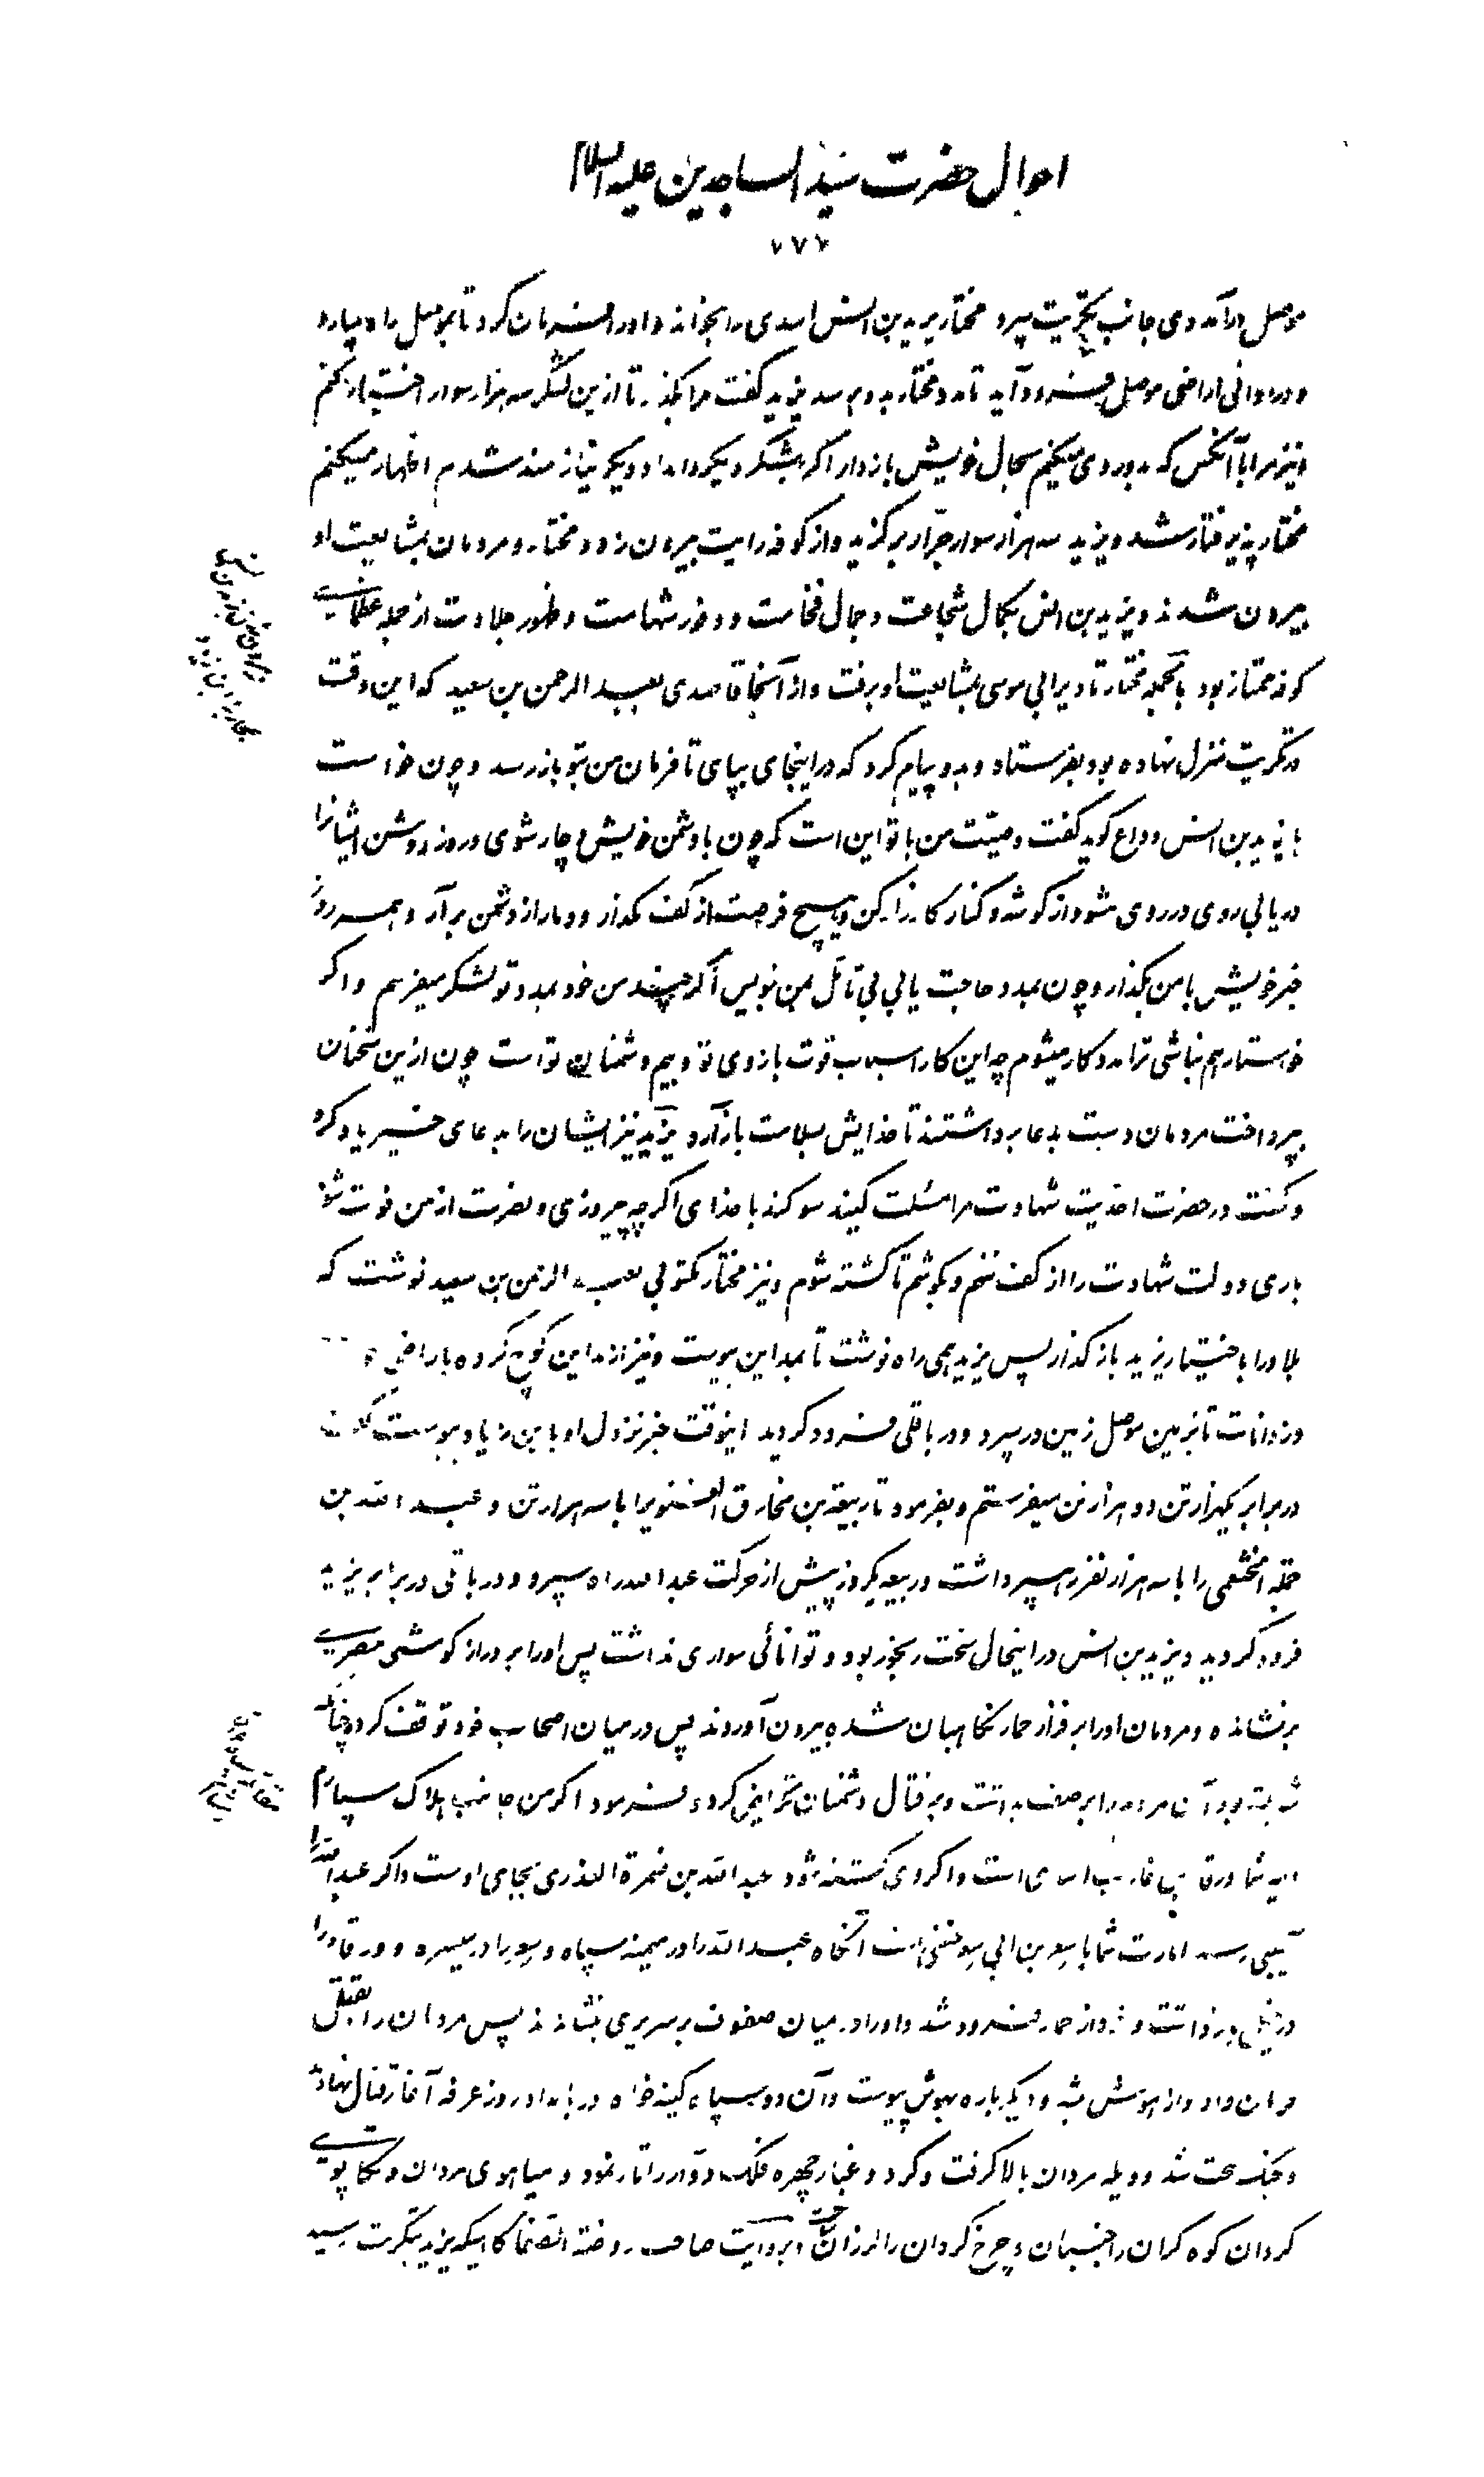 احوال حضرت سید الساجدین علیه السلام
۷۷۷
موصل درآمد وی جانب تکریت سپرد مختار یزید بن انس اسدی را بخواند و او را فرمان کرد تا بموصل راه سپارد
و در ادانی اراضی موصل فرود آید تا مدد مختار بدو رسد یزید گفت مرا بگذار تا ازین لشکر سه هزار سوار اختیار کنم
و نیز مرا با آنکس که بدو روی میکنم بحال خویش بازدار اگر بلشکر دیگر و امداد دیگر نیازمند شدم اظهار میکنم
مختار پذیرفتار شد و یزید سه هزار سوار جرّار برگزید و از کوفه رایت بیرون زد و مختار و مردمان بمشایعت او
بیرون شدند و یزید بن انس بکمال شجاعت و جمال فخامت و وفور شهامت و ظهور جلادت از جمله عظمای
کوفه ممتاز بود بالجمله مختار تا دیر ابی موسی بمشایعت او برفت و از آنجا قاصدی بعبد الرحمن بن سعید که این وقت
در تکریت منزل نهاده بود بفرستاد و بدو پیام کرد که در اینجای بپای تا فرمان من بتو باز رسد و چون خواست
با یزید بن انس وداع گوید گفت وصیّت من با تو این است که چون با دشمن خویش دچار شوی و روز روشن ایشانرا
دریابی روی در روی شو و از گوشه و کنار کارزار کن و هیچ فرصت از کف مگذار و دمار از دشمن برآر و همه روز
خبر خویش با من بگذار و چون بمدد حاجت یابی بی تأمّل بمن نویس اگر چند من خود بمدد تو لشکر میفرستم و اگر
خواستار هم نباشی ترا مددکار میشوم چه این کار اسباب قوت بازوی تو و بیم دشمنان تو است چون ازین سخنان
بپرداخت مردمان دست بدعا برداشتند تا خدایش بسلامت باز آرد یزید نیز ایشان را بدعای خیر یاد کرد
و گفت در حضرت احدیت شهادت مرا مسئلت کنید سوگند با خدای اگر چه پیروزی و نصرت از من فوت شود
باری دولت شهادت را از کف ننهم و بکوشم تا کشته شوم و نیز مختار مکتوبی بعبد الرحمن بن سعید نوشت که
بلاد را باختیار یزید باز گذار پس یزید همی راه نوشت تا بمداین پیوست و نیز از مداین کوچ کرده باراضی
و زمین موصل در سپرد و در باقلی فرود گردید اینوقت خبر نزول او با ابن زیاد پیوست گفت
در برابر یکهزار تن دو هزار تن میفرستم و بفرمود تا ربیعة بن مخارق الغنوی را با سه هزار تن و عبد الله بن
حملة الخثعمی را با سه هزار نفر رهسپر داشت و ربیعه یکروز پیش از حرکت عبد الله راه سپرد و در باقلی در برابر یزید
فرود گردید و یزید بن انس در اینحال سخت رنجور بود و توانائی سواری نداشت پس او را بر دراز گوشی مصری
برنشانده و مردمان او را بر فراز حمار نگاهبان شده بیرون آوردند پس در میان اصحاب خود توقف کرد چنانکه
بود آن مردم را بر صف بداشت و بر قتال دشمنان تحریض کرد و فرمود اگر من جانب هلاک سپارم
امیر شما ورقاء بن عازب اسدی است و اگر وی کشته شود عبد الله بن ضمرة العذری بجای اوست و اگر عبد الله را
آسیبی رسد امارت شما با سعر بن ابی سعر حنفی است آنگاه عبد الله را در میمنه سپاه و سعر را در میسره و ورقا را
در خیل بداشت و خود از حمار فرود شد و او را در میان صفوف بر سریری بنشاندند پس مردمان را بقتال
فرمان داد و از هوش بشد و دیگر باره بهوش پیوست و آن دو سپاه کینه خواه در بامداد روز عرفه آغاز قتال نهادند
و جنگ سخت شد و ویله مردان بالا گرفت و گرد و غبار چهره فلک دوّار را تار نمود و هیاهوی مردان و تکاپوی
گردان کوه گران را جنبان و چرخ گردان را لرزان ساخت و بروایت صاحب روضة الصفا گاهیکه یزید بتکریت رسید